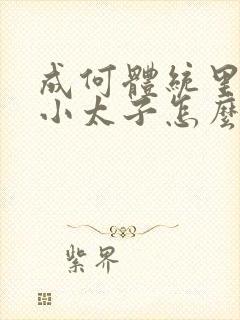 成何體統里
小太子怎麼
紫界